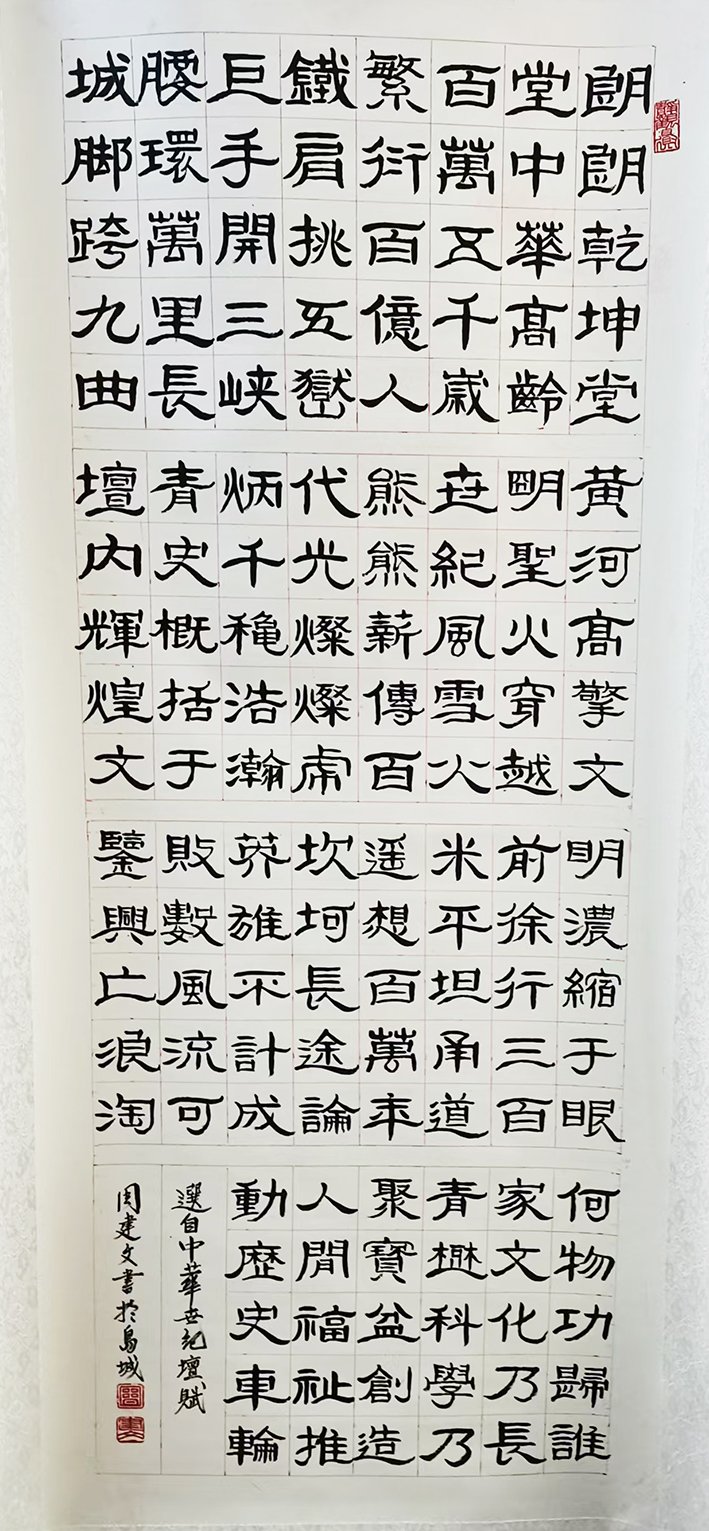 朗朗乾坤堂
堂中華髙齡
百萬五千歲
繁衍百億人
鐵肩挑五嶽
巨手開三峡
腰環萬里長
城脚跨九曲
黃河髙擎文
明聖火穿越
世紀風雪火
熊熊薪傳百
代光燦燦虎
炳千穐浩瀚
青史概括于
壇内輝煌文
明濃縮于眼
前徐行三百
米平坦甬道
遥想百萬年
坎坷長途論
英雄不計成
敗數風流可
鑒興亡浪淘
何物功歸誰
家文化乃長
青樹科學乃
聚寶盆創造
人間福祉推
動歷史車輪
選自中華世紀壇賦
周建文書於島城